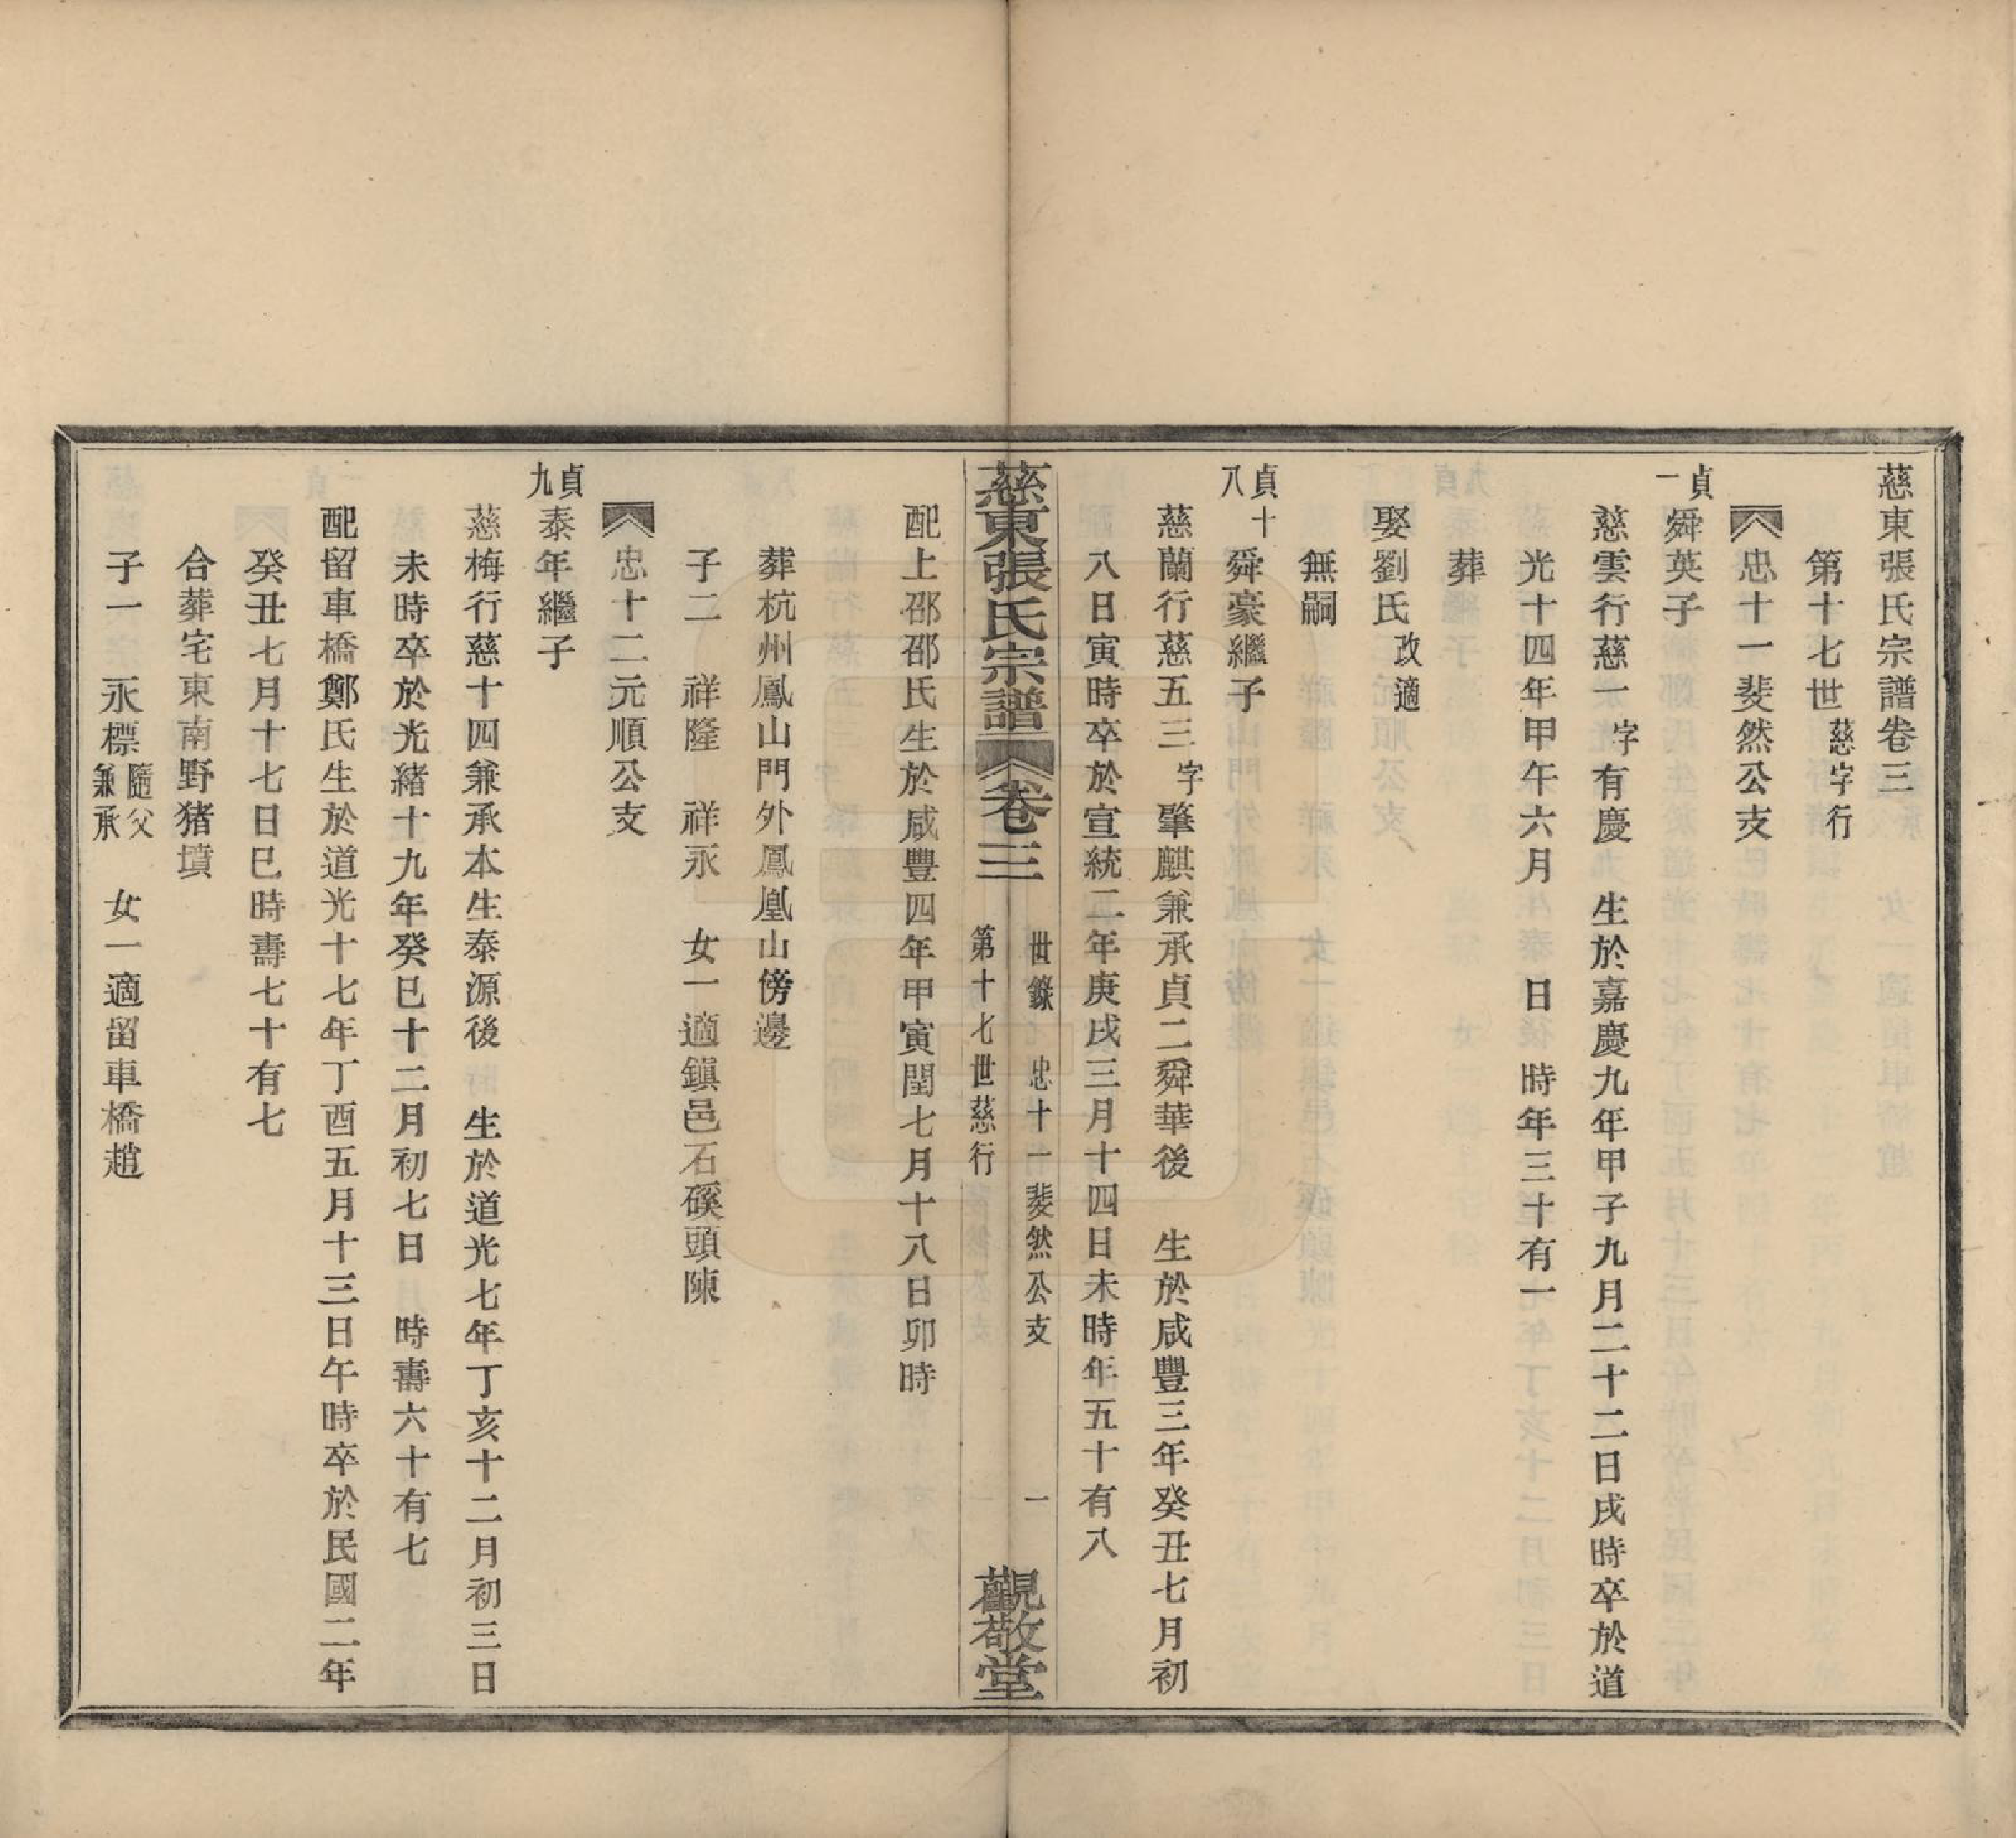 慈東張氏宗譜卷三
第十七世慈字行
忠十一斐然公支
貞一舜英子
慈雲行慈一字有慶　生於嘉慶九年甲子九月二十二日戌時卒於道
光十四年甲午六月　　日　時年三十有一
葬
娶劉氏改適
無嗣
貞十八舜豪繼子
慈蘭行慈五三字肇麒兼承貞二舜華後　生於咸豐三年癸丑七月初
八日寅時卒於宣統二年庚戌三月十四日未時年五十有八
慈東張氏宗譜　卷三　世錄　忠十一斐然公支　第十七世慈行　一　觀敬堂
配上邵邵氏生於咸豐四年甲寅閏七月十八日卯時
葬杭州鳳山門外鳳凰山傍邊
子二　祥隆　祥永　女一適鎭邑石磎頭陳
忠十二元順公支
貞九泰年繼子
慈梅行慈十四兼承本生泰源後　生於道光七年丁亥十二月初三日
未時卒於光緒十九年癸巳十二月初七日　時壽六十有七
配留車橋鄭氏生於道光十七年丁酉五月十三日午時卒於民國二年
癸丑七月十七日巳時壽七十有七
合葬宅東南野猪墳
子一　永標隨父兼承　女一適留車橋趙